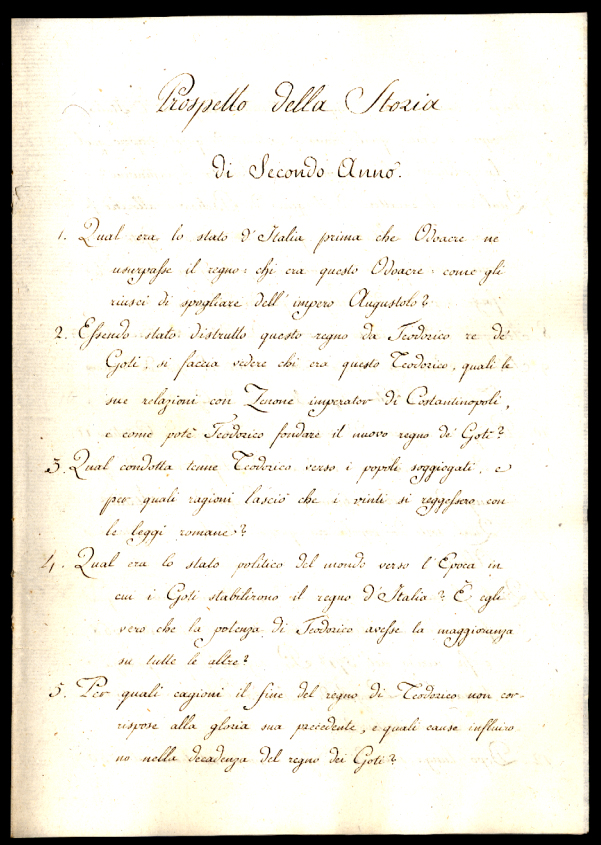 Prospetto della Storia
di Secondo Anno.
1. Qual era lo stato d'Italia prima che Odoacre ne
usurpasse il regno: chi era questo Odoacre: come gli
riuscì di spogliare dell'impero Augustolo?
2. Essendo stato distrutto questo regno da Teodorico re de'
Goti, si faccia vedere chi era questo Teodorico, quali le
sue relazioni con Zenone imperator di Costantinopoli,
e come potè Teodorico fondare il nuovo regno de' Goti?
3. Qual condotta tenne Teodorico verso i popoli soggiogati, e
per quali ragioni lasciò che i vinti si reggessero con
le leggi romane?
4. Qual era lo stato politico del mondo verso l'Epoca in
cui i Goti stabilirono il regno d'Italia? È egli
vero che la potenza di Teodorico avesse la maggioranza
su tutte le altre?
5. Per quali cagioni il fine del regno di Teodorico non cor-
rispose alla gloria sua precedente, e quali cause influiro
no nella decadenza del regno dei Goti?